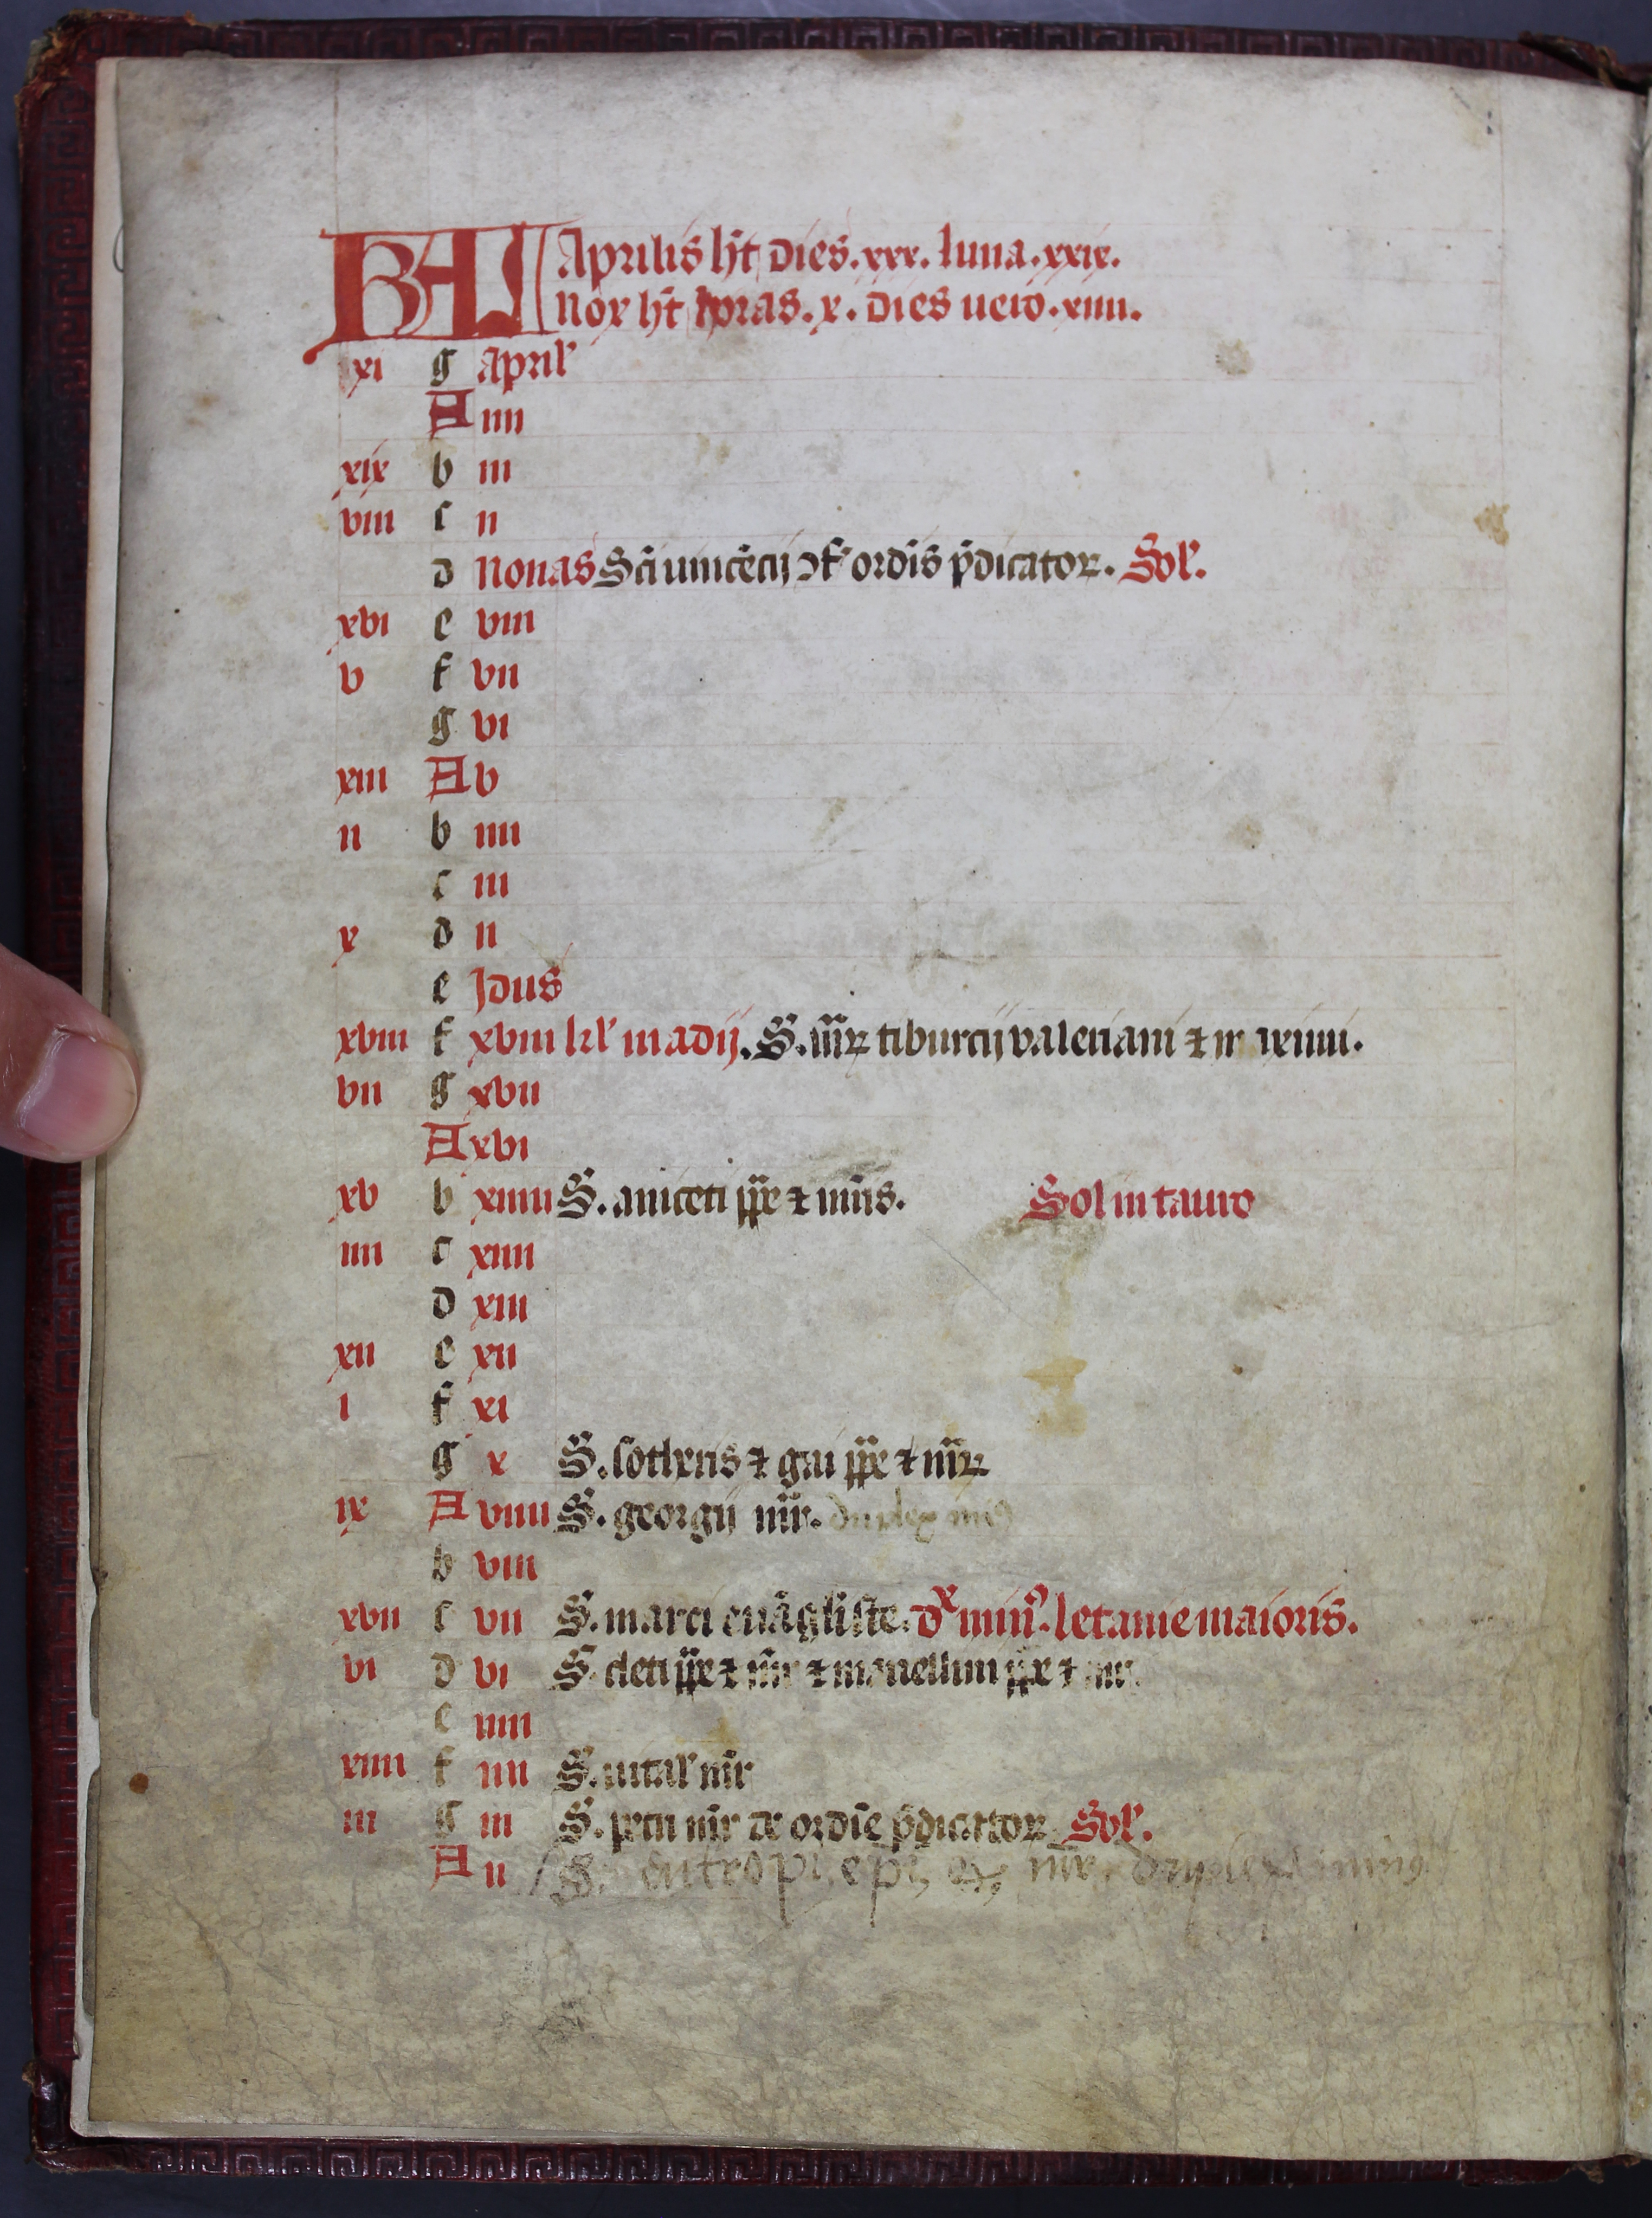 KAL Aprilis ht̄ dies. xxx. luna. xxix.
nox ht̄ horas. x. dies uero. xiiii.
xi g April'
A iiii
xix b iii
viii c ii
d nonas Sci uincēcij ɔf' ordīs p̄dicatoꝝ. Sol'.
xvi e viii
v f vii
g vi
xiii A v
ii b iiii
c iii
x d ii
e Jdus
xviii f xviii kl' madij. S. mr̄ꝝ tiburcij valeriani ⁊ maximi.
vii g xvii
A xvi
xv b xiiiii S. aniceti pp̄e ⁊ mr̄is. Sol in tauro
iiii c xiiii
d xiii
xii e xii
i f xi
g x S. sotheris ⁊ gaii pp̄e ⁊ mr̄ꝝ
ix A viiii S. georgij mr̄. duplex
b viii
xvii c vii S. marci euāgliste. dx min9. letanie maioris.
vi d vi S. cleti pp̄e ⁊ mr̄ ⁊ marcellini pp̄e ⁊ mr̄.
e iiiii
xiiii f iiii S. uital' mr̄
iii g iii S. petri mr̄ de ordīe p̄dicattoꝝ Sol'.
A ii S. eutropi. epi. & mr̄. duplex min9